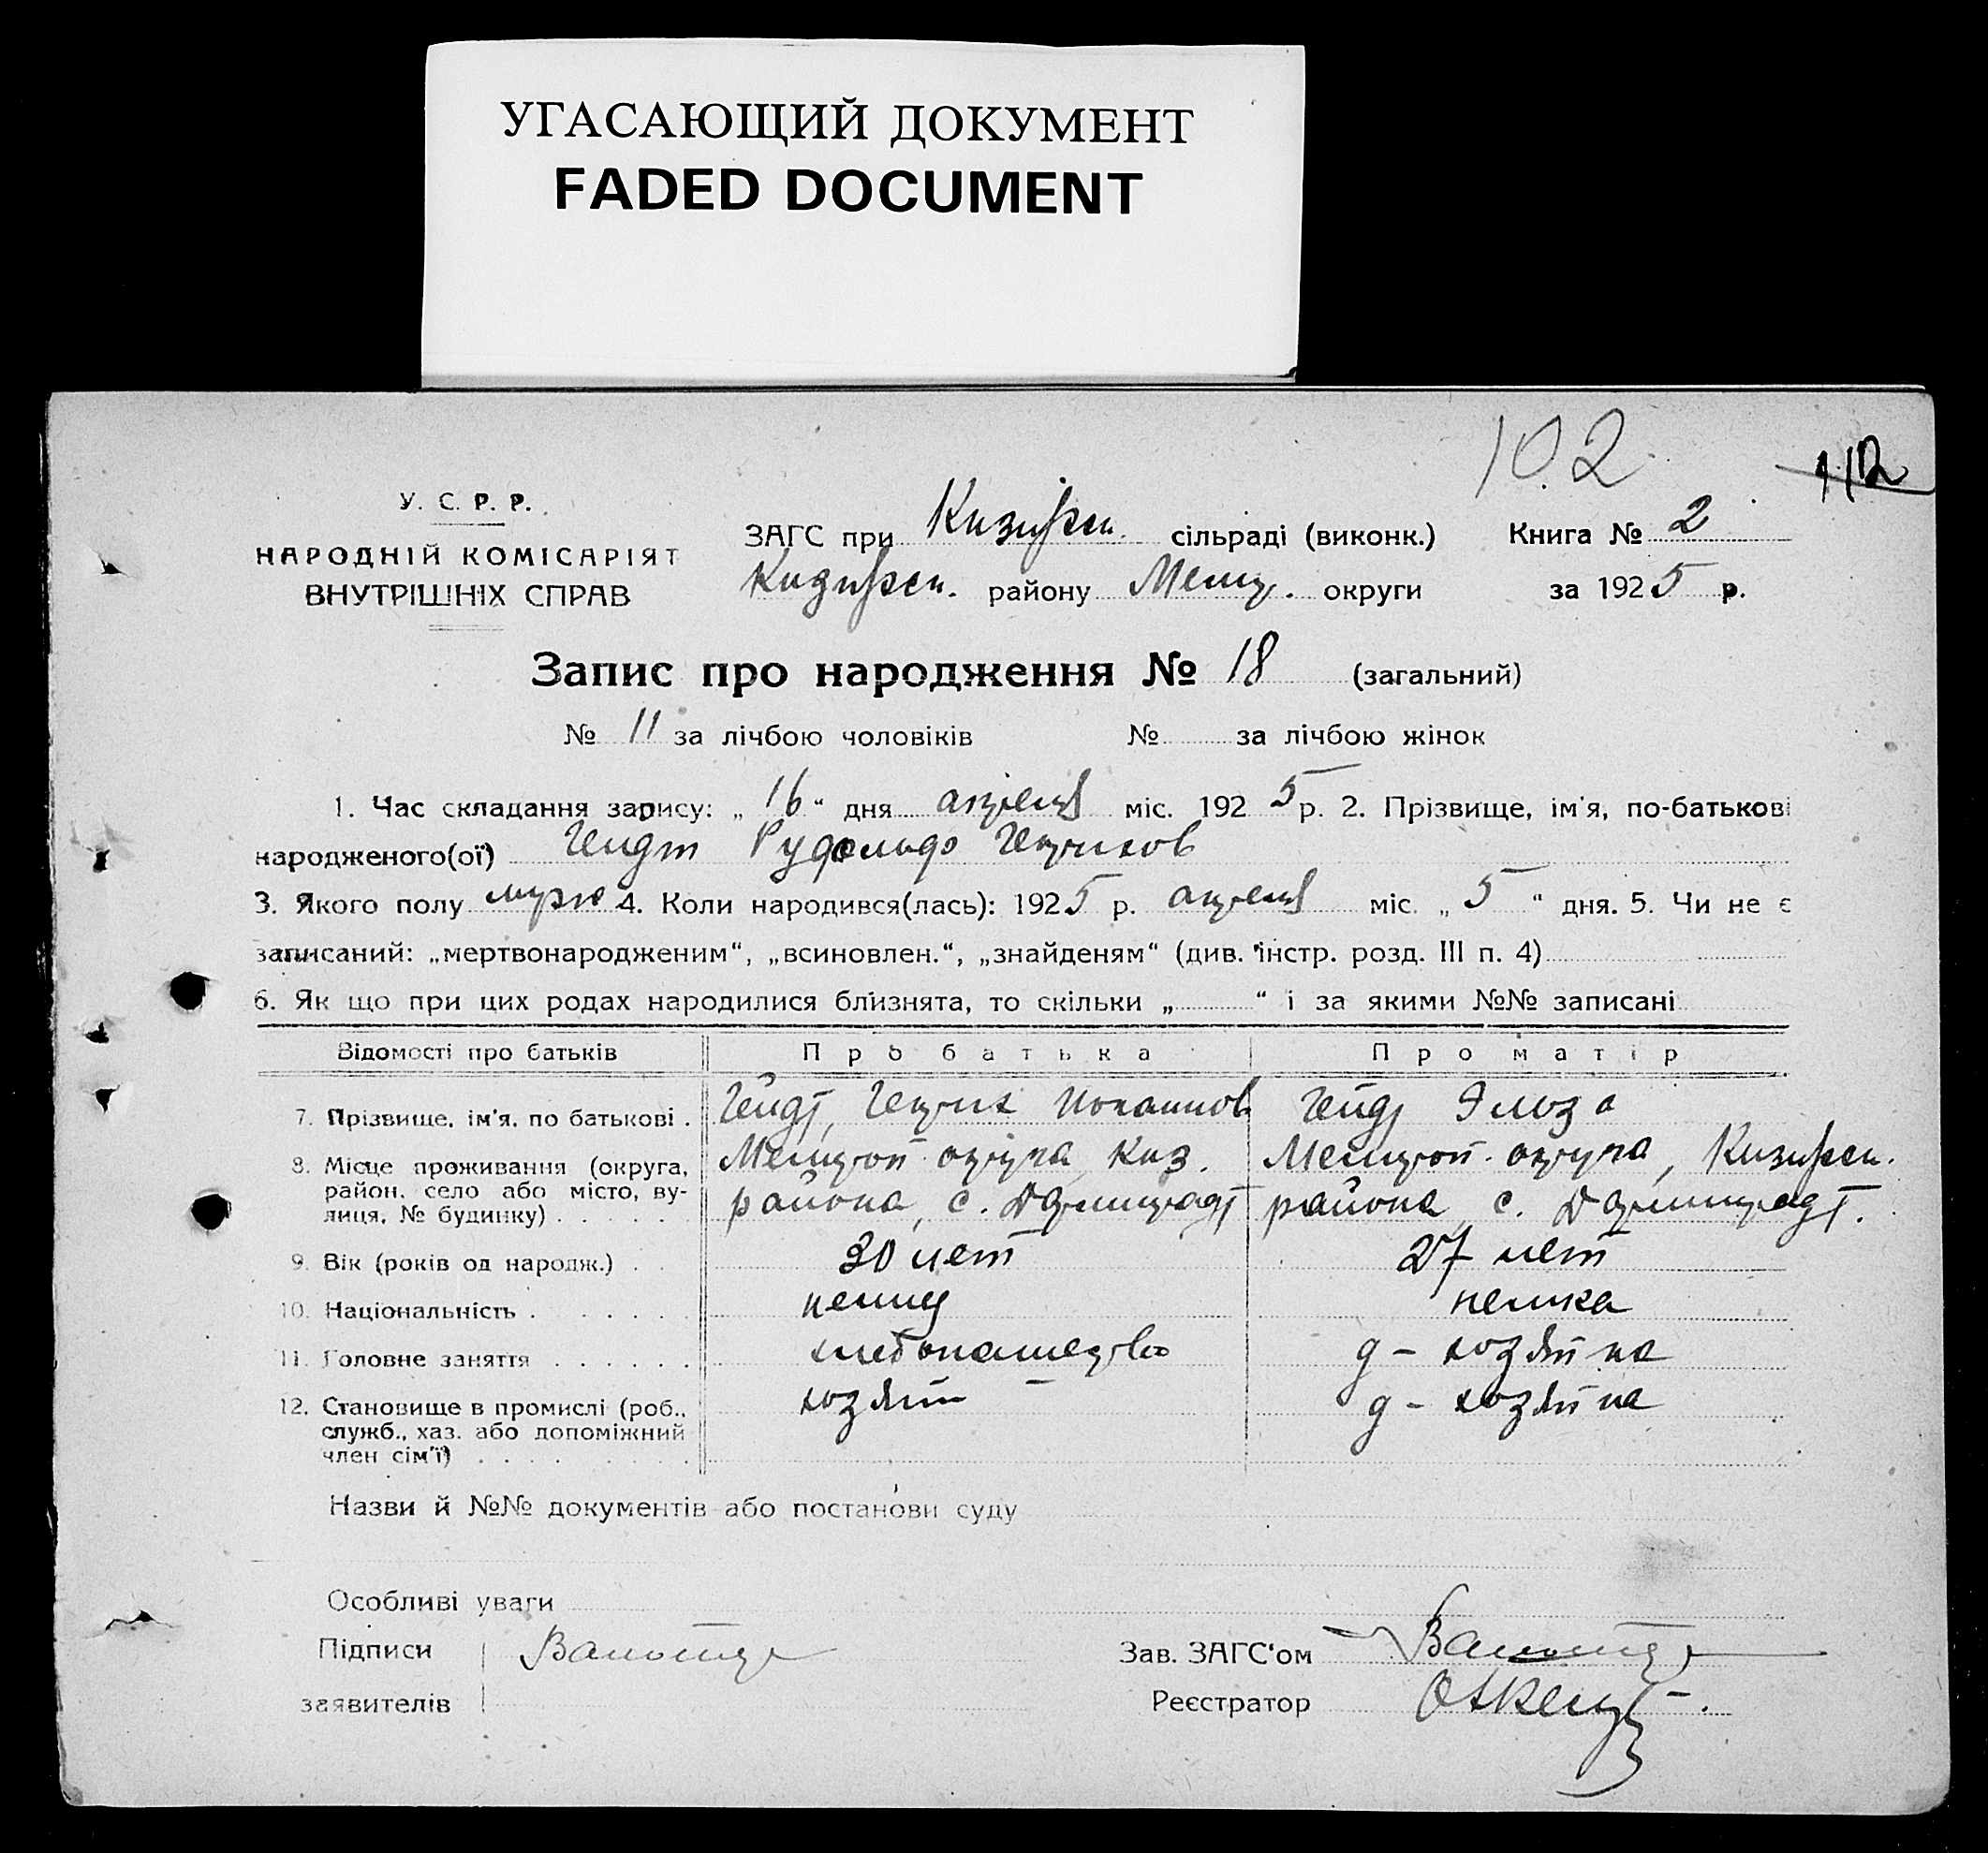 УГАСАЮЩИЙ ДОКУМЕНТ
FADED DOCUMENT
10.2
112
У. С. Р. Р.
НАРОДНІЙ КОМІСАРІЯТ
ВНУТРІШНІХ СПРАВ
ЗАГС при сільраді (виконк.) Книга № 2
району Мелит. округи за 1925 р.
Запис про народження № 18 (загальний)
№ 11 за лічбою чоловіків № за лічбою жінок
1. Час складання запису: „16“ дня апреля міс. 1925 р. 2. Прізвище, ім'я, по-батькові
народженого(ої) Гейдт Рудольф Генрихов
3. Якого полу муж 4. Коли народився(лась): 1925 р. апреля міс. „5“ дня. 5. Чи не є
записаний: „мертвонародженим“, „всиновлен.“, „знайденям“ (див. інстр. розд. III п. 4)
6. Як що при цих родах народилися близнята, то скільки „ “ і за якими №№ записані
Відомості про батьків Про батька Про матір
7. Прізвище, ім'я, по батькові . Гейдт, Генрих Иоганнов Гейдт Эльза
8. Місце проживання (округа, район, село або місто, вулиця, № будинку) . . . . . . Мелитоп округа, Киз. района, с. Дармштадт Мелитоп. округа, района, с. Дармштадт.
9. Вік (років од народж.) . . 30 лет 27 лет
10. Національність . . . . . . немец немка
11. Головне заняття . . . . . . хлебопашество д-хозяйка
12. Становище в промислі (роб., служб., хаз. або допоміжний член сім'ї) . . . . . . . . хозяин д-хозяйка
Назви й №№ документів або постанови суду
Особливі уваги
Підписи Зав. ЗАГС'ом
заявителів Реєстратор